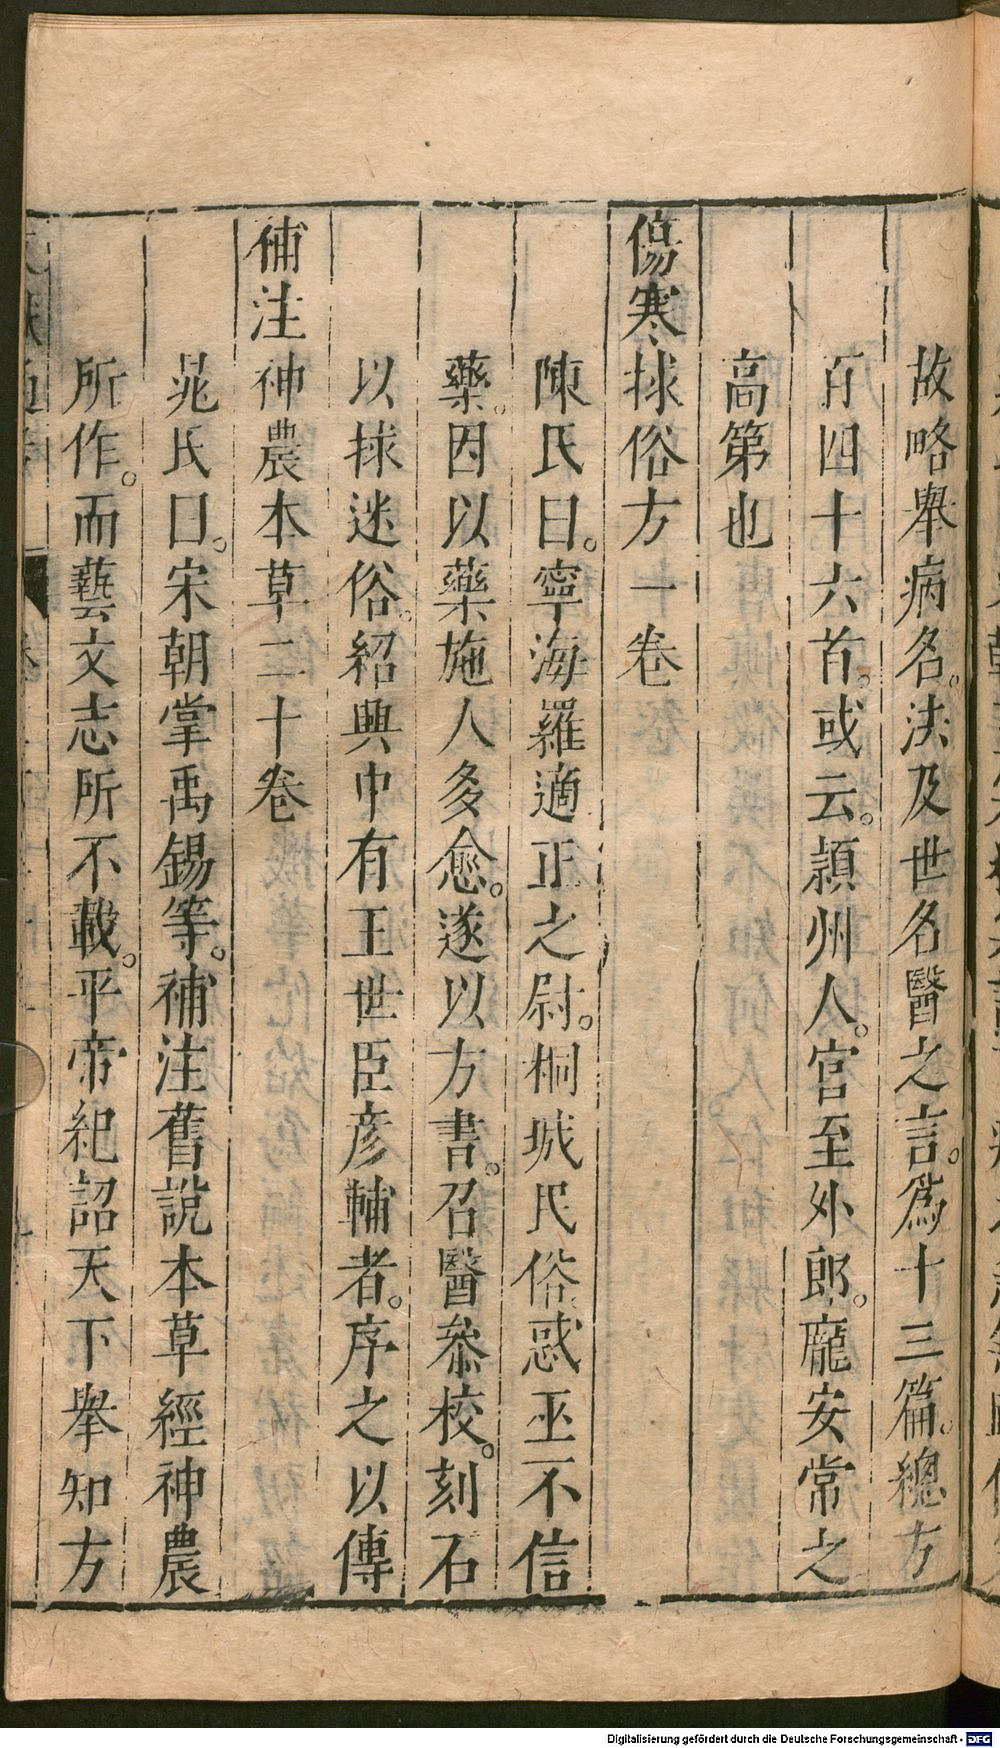 故略舉病名法及世名醫之言。爲十三篇。總方
百四十六首。或云。潁州人。官至外郎。龐安常之
高第也
傷寒捄俗方一卷
陳氏曰。寧海羅適正之尉。桐城民俗惑巫不信
藥。因以藥施人多愈。遂以方書。召醫叅校。刻石
以捄迷俗。紹興中有王世臣彦輔者。序之以傳
補注神農本草二十卷
晁氏曰。宋朝掌禹錫等。補注舊說本草經神農
所作。而藝文志所不載。平帝紀詔天下舉知方
Digitalisierung gefördert durch die Deutsche Forschungsgemeinschaft - DFG